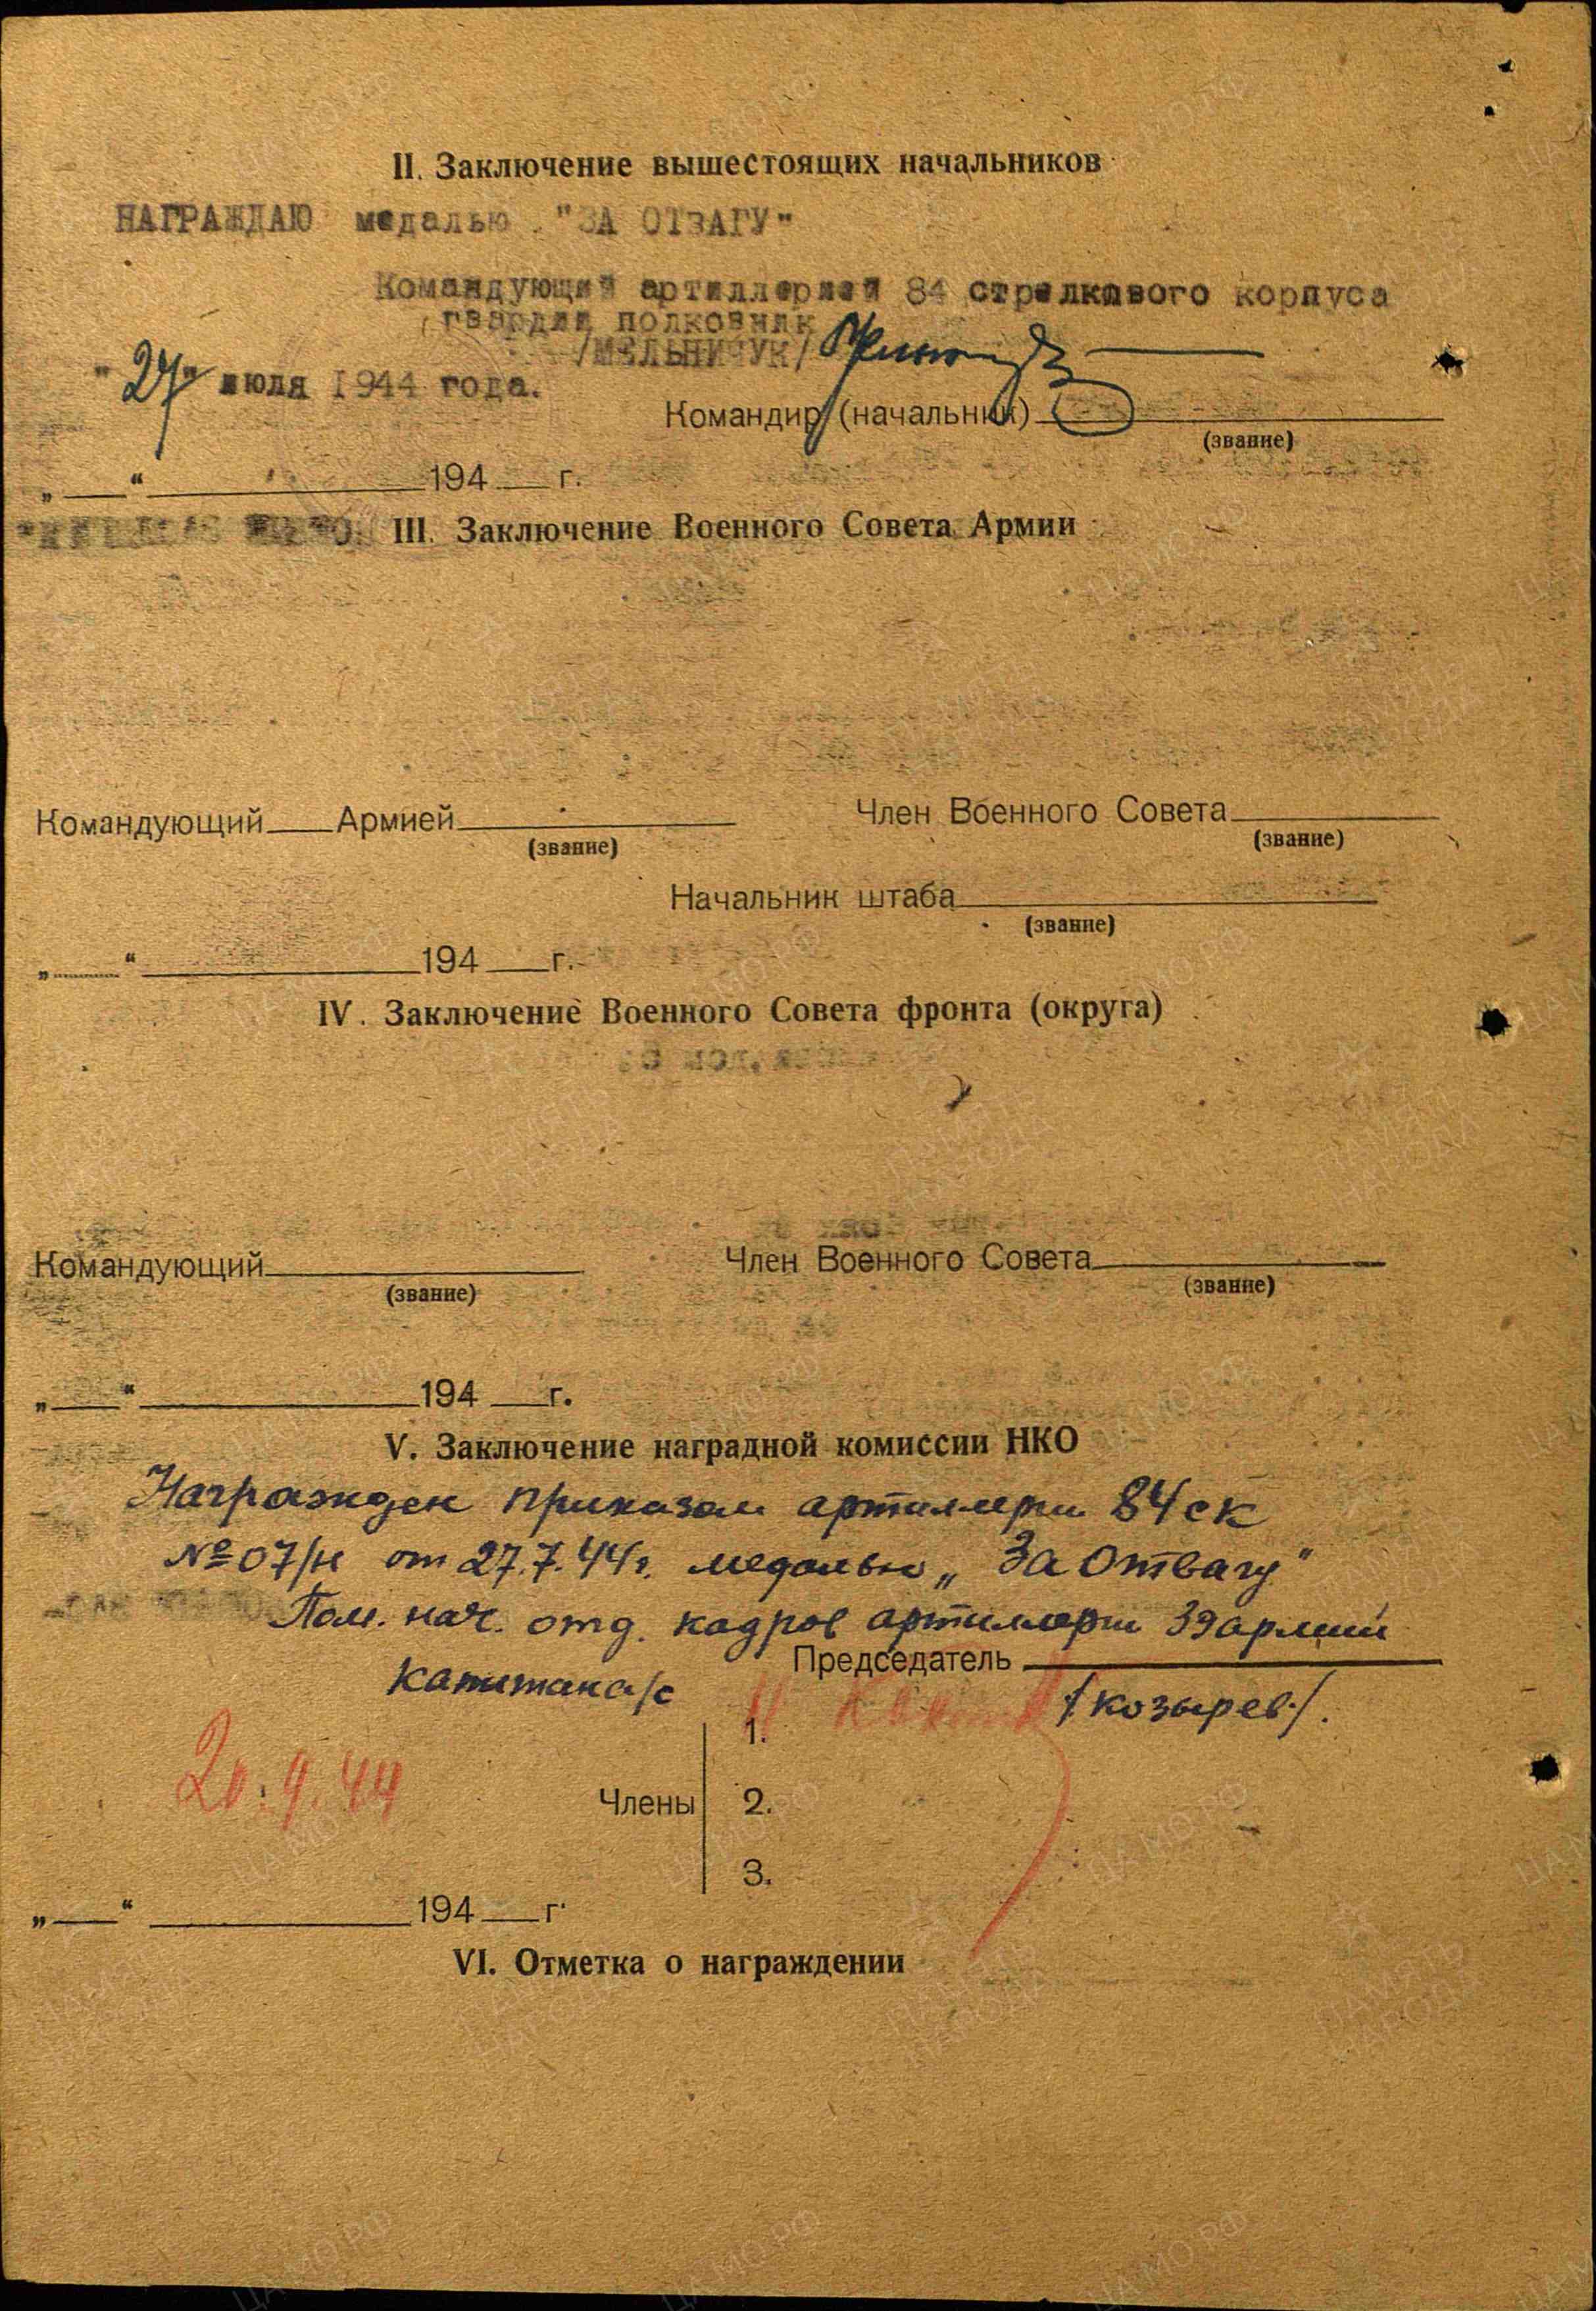 II. Заключение вышестоящих начальников
НАГРАЖДАЮ медалью "ЗА ОТВАГУ"
Командующий артиллерией 84 стрелкового корпуса
гвардии полковник
/МЕЛЬНИЧУК/
"27" июля 1944 года.
Командир (начальник)
(звание)
„ “ 194 г.
III. Заключение Военного Совета Армии
Командующий Армией Член Военного Совета
(звание) (звание)
Начальник штаба
(звание)
„ “ 194 г.
IV. Заключение Военного Совета фронта (округа)
Командующий Член Военного Совета
(звание) (звание)
„ “ 194 г.
V. Заключение наградной комиссии НКО
Награжден приказом артиллерии 84 ск
№ 07/н от 27.7.44г. медалью „За Отвагу"
Пом. нач. отд. кадров артиллерии 39 армии
Председатель
капитан а/с /Козырев/.
1.
20.9.44
Члены 2.
3.
„ “ 194 г.
VI. Отметка о награждении